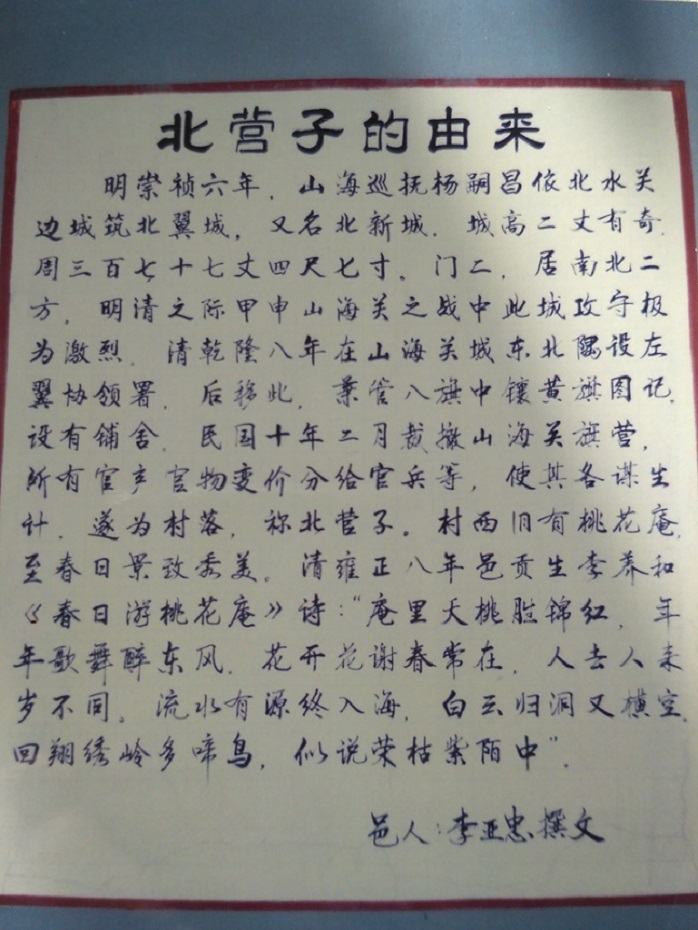 北营子的由来
明崇祯六年，山海巡抚杨嗣昌依北水关
边城筑北翼城，又名北新城．城高二丈有奇．
周三百七十七丈四尺七寸．门二，居南北二
方．明清之际甲申山海关之战中此城攻守极
为激烈．清乾隆八年在山海关城东北隅设左
翼协领署．后移此，兼管八旗中镶黄旗图记．
设有铺舍．民国十年二月裁撤山海关旗营，
所有官产官物变价分给官兵等，使其各谋生
计．遂为村落，称北营子．村西旧有桃花庵．
至春日景致秀美．清雍正八年邑贡生李养和
《春日游桃花庵》诗：“庵里夭桃胜锦红，年
年歌舞醉东风．花开花谢春常在，人去人来
岁不同．流水有源终入海，白云归洞又横空．
回翔绣岭多啼鸟，似说荣枯紫陌中”．
邑人：李亚忠撰文